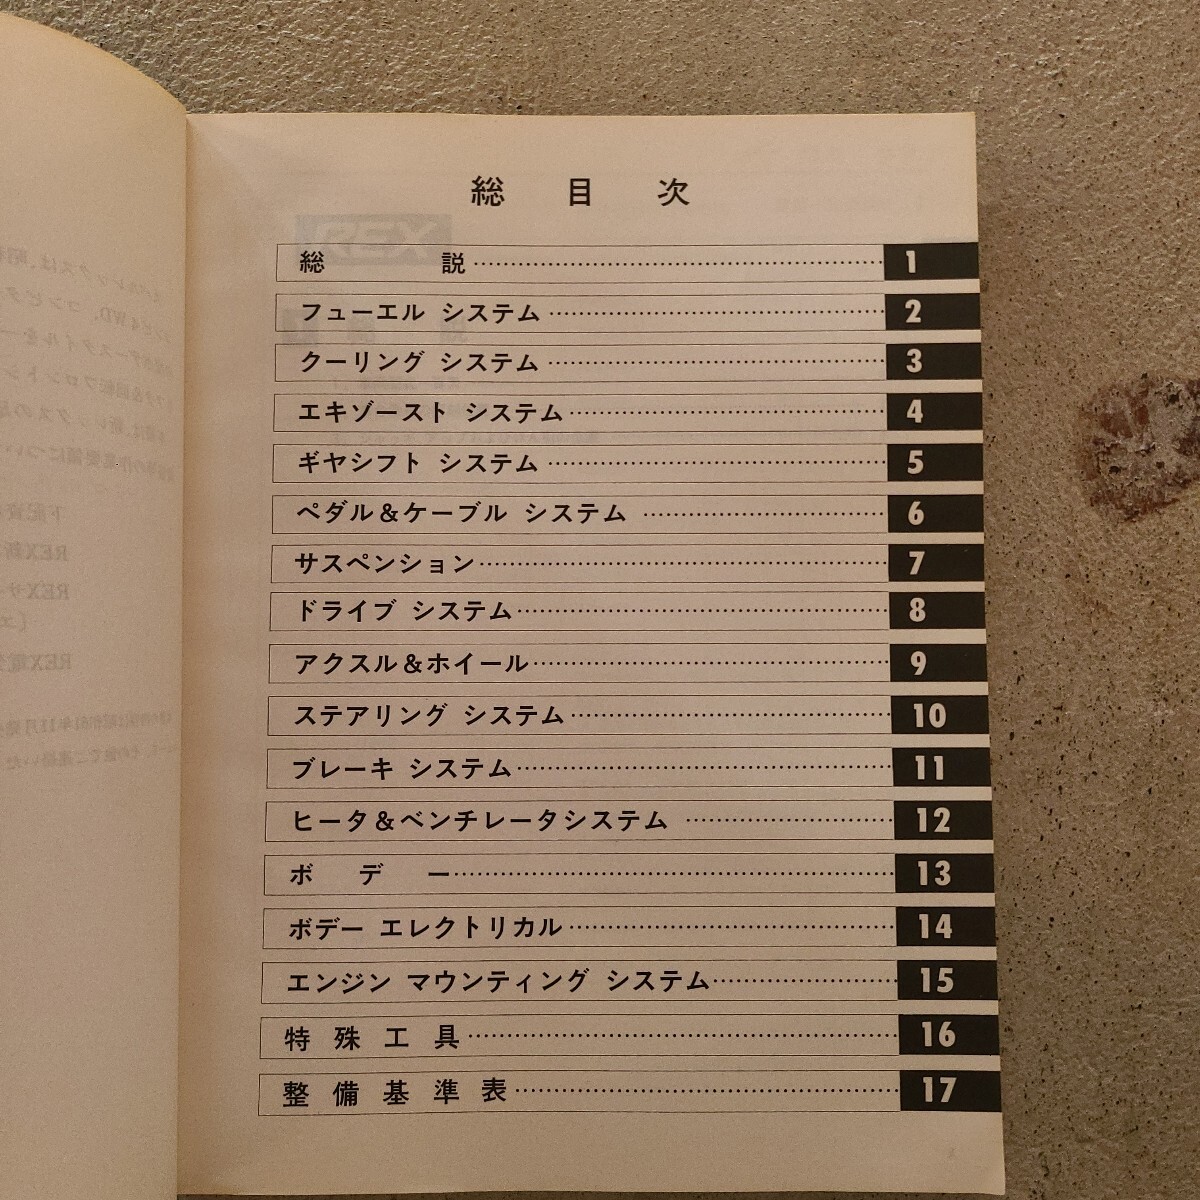 総目次
総説 1
フューエル システム 2
クーリング システム 3
エキゾースト システム 4
ギヤシフト システム 5
ペダル&ケーブル システム 6
サスペンション 7
ドライブ システム 8
アクスル&ホイール 9
ステアリング システム 10
ブレーキ システム 11
ヒータ&ベンチレータシステム 12
ボデー 13
ボデー エレクトリカル 14
エンジン マウンティング システム 15
特殊工具 16
整備基準表 17
REX